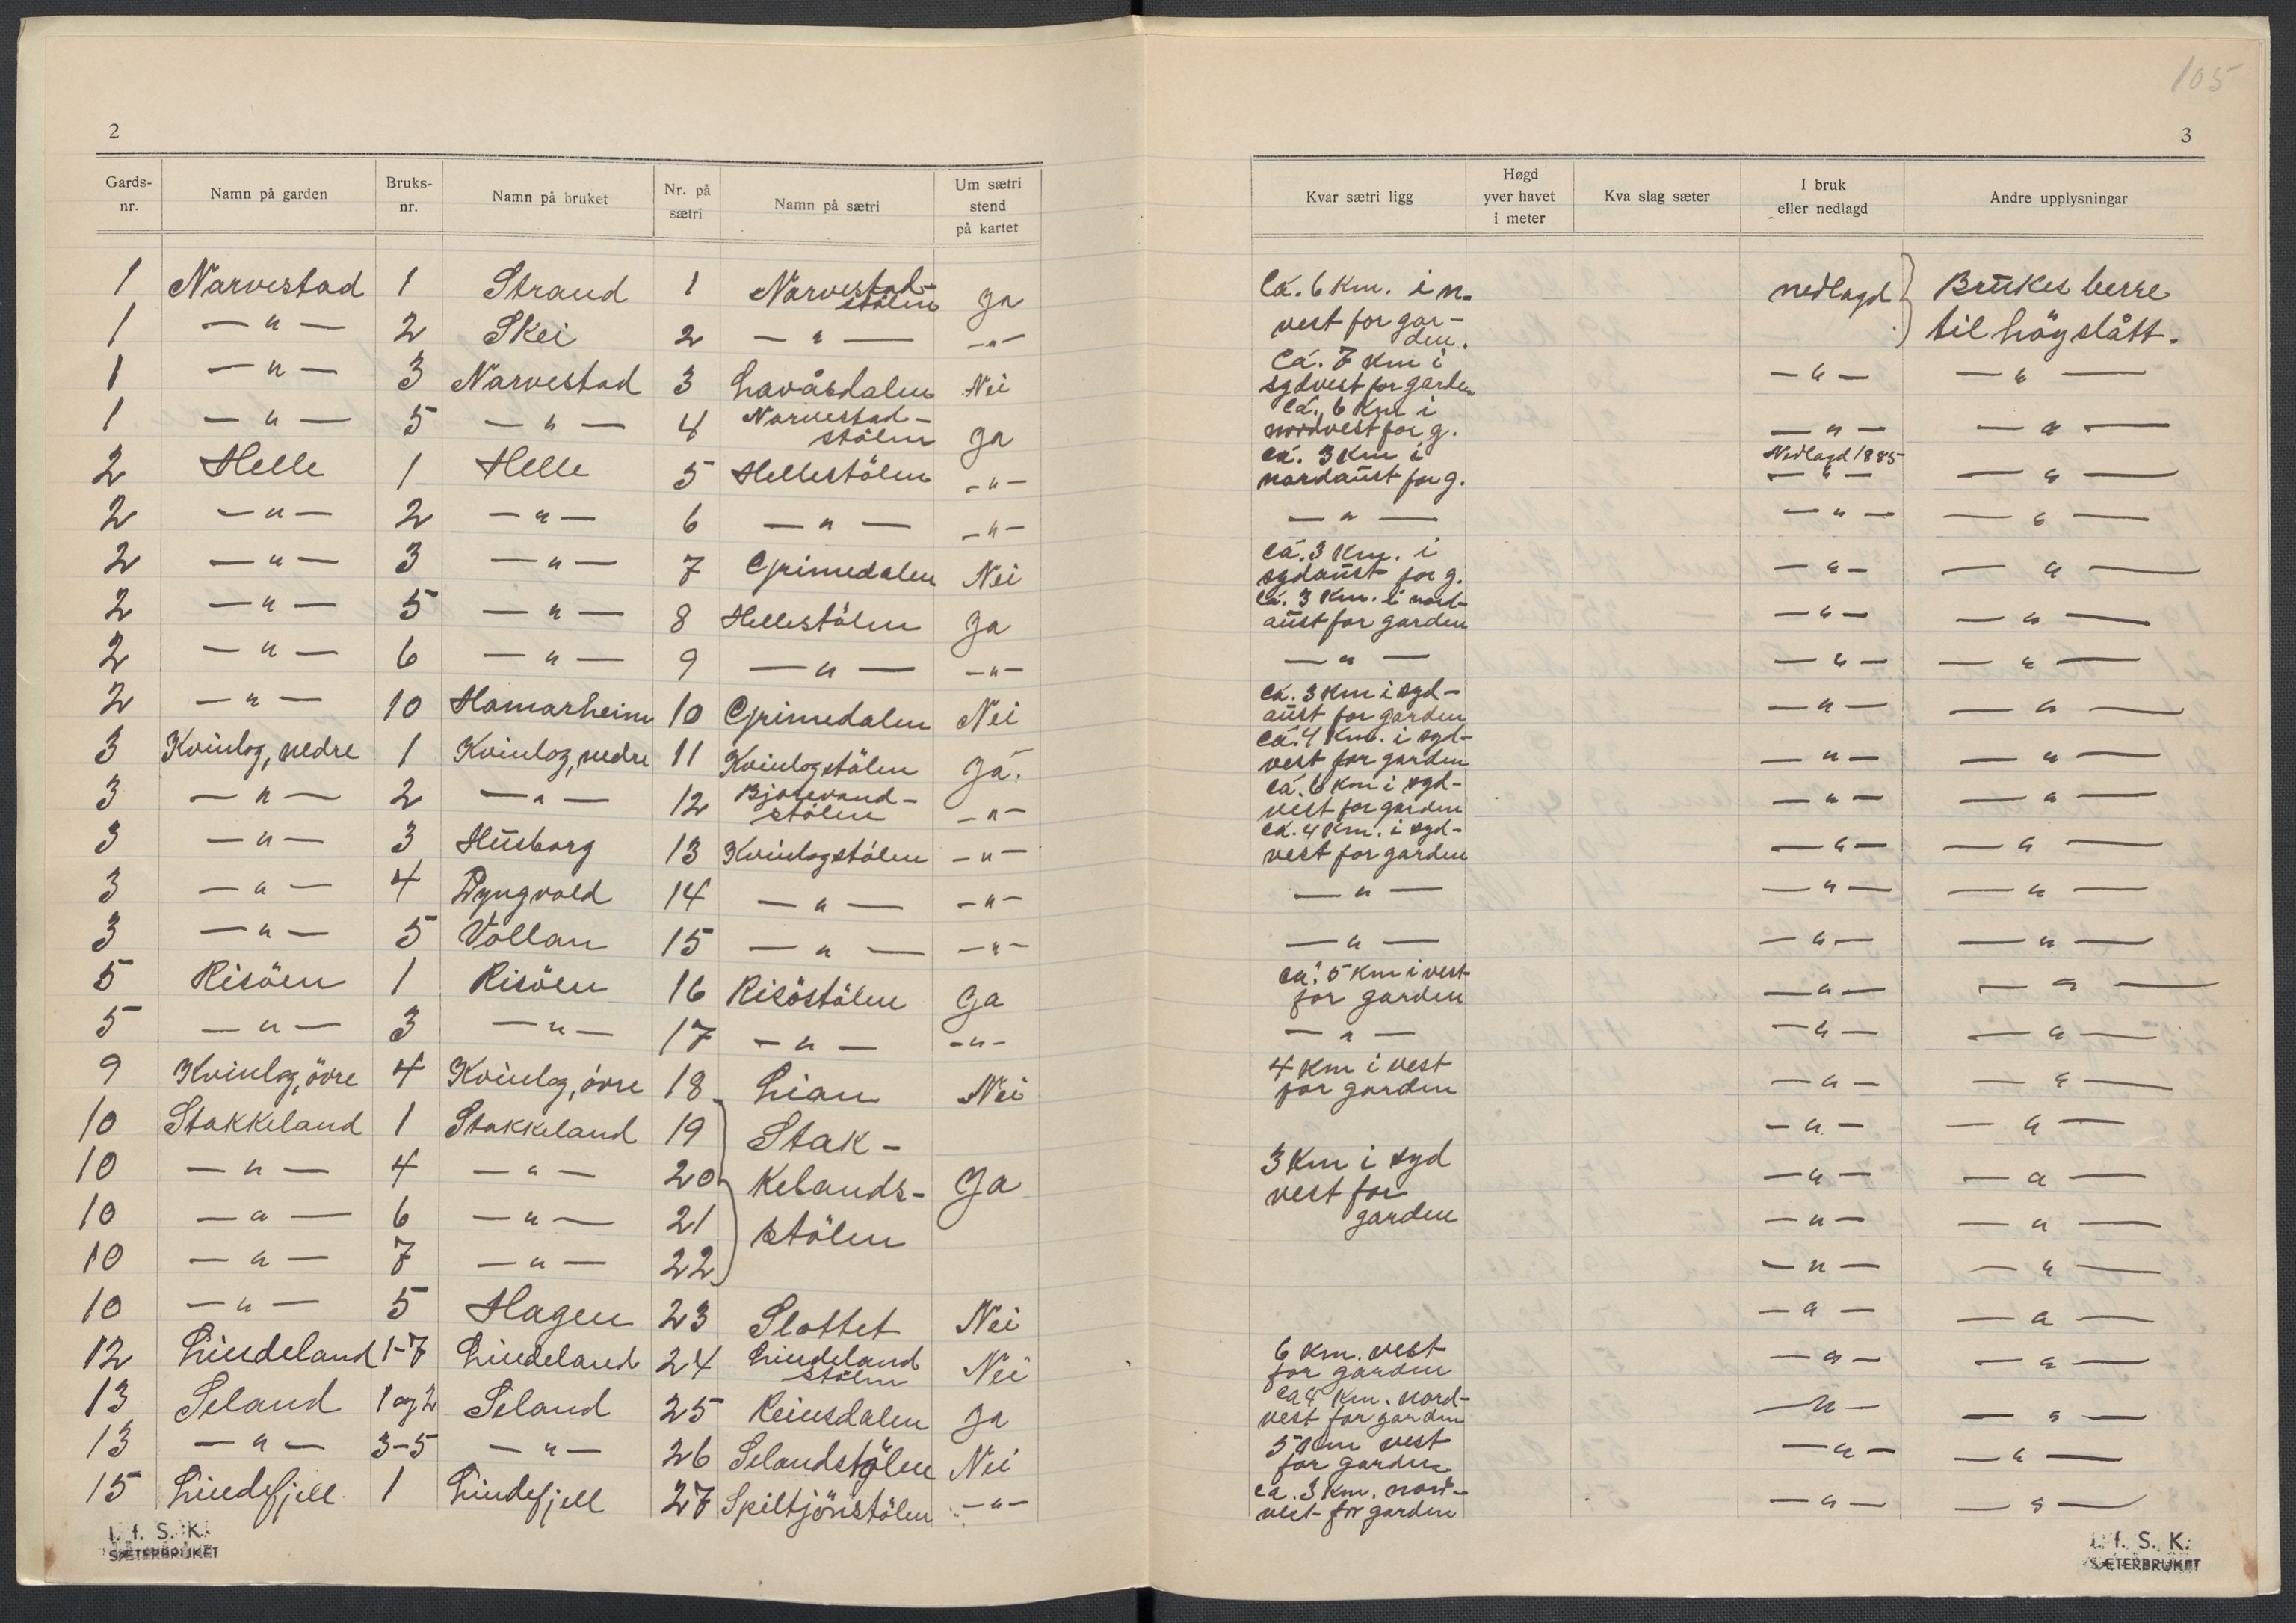 105
2
3
Gards-nr. Namn på garden Bruks-nr. Namn på bruket Nr. på sætri Namn på sætri Um sætri stend på kartet Kvar sætri ligg Høgd yver havet i meter Kva slag sæter I bruk eller nedlagd Andre upplysningar
1 Narvestad 1 Strand 1 Narvestad-stölen Ja Ca. 6 Km. i n.vest for gar-den. nedlagd Brukes berre til höyslått.
1 — " — 2 Skei 2 — " — — " —
1 — " — 3 Narvestad 3 Lavåsdalen Nei Ca. 7 Km i sydvest for garden — " — — " —
1 — " — 5 — " — 4 Narvestad-stölen Ja Ca. 6 Km i nordvest for g. — " — — " —
2 Helle 1 Helle 5 Hellestölen — " — Ca. 3 Km i nordaust for g. Nedlagd 1885 — " — — " —
2 — " — 2 — " — 6 — " — — " — — " — — " — — " —
2 — " — 3 — " — 7 Grimedalen Nei Ca. 3 Km. i sydaust for g. — " — — " —
2 — " — 5 — " — 8 Hellestölen Ja Ca. 3 Km. i nord-aust for garden — " — — " —
2 — " — 6 — " — 9 — " — — " — — " — — " — — " —
2 — " — 10 Hamarheim 10 Grimedalen Nei Ca. 3 Km i syd-aust for garden — " — — " —
3 Kvinlog, nedre 1 Kvinlog, nedre 11 Kvinlogstölen Ja. Ca. 4 Km. i syd-vest for garden — " — — " —
3 — " — 2 — " — 12 Bjosevand-stölen — " — Ca. 6 Km i syd-vest for garden — " — — " —
3 — " — 3 Husborg 13 Kvinlogstölen — " — Ca. 4 Km. i syd-vest for garden — " — — " —
3 — " — 4 Lyngvold 14 — " — — " — — " — — " — — " —
3 — " — 5 Vollan 15 — " — — " — — " — — " — — " —
5 Risöen 1 Risöen 16 Risöstölen Ja Ca. 5 Km i vest for garden — " — — " —
5 — " — 3 — " — 17 — " — — " — — " — — " — — " —
9 Kvinlog, övre 4 Kvinlog, övre 18 Lian Nei 4 Km i vest for garden — " — — " —
10 Stakkeland 1 Stakkeland 19 Stak- — " — — " —
10 — " — 4 — " — 20 kelands- Ja 3 Km i syd vest for garden — " — — " —
10 — " — 6 — " — 21 stölen — " — — " —
10 — " — 7 — " — 22 — " — — " —
10 — " — 5 Hagen 23 Slottet Nei — " — — " —
12 Lindeland 1-7 Lindeland 24 Lindeland stölen Nei 6 Km. vest for garden — " — — " —
13 Seland 1 og 2 Seland 25 Reinsdalen Ja Ca 4 Km. nord-vest for garden — " — — " —
13 — " — 3-5 — " — 26 Selandstölen Nei 5 Km vest for garden — " — — " —
15 Lindefjell 1 Lindefjell 27 Spiltjönstölen — " — Ca. 3 Km. nord-vest for garden — " — — " —
I. f. S. K. SÆTERBRUKET
I. f. S. K. SÆTERBRUKET